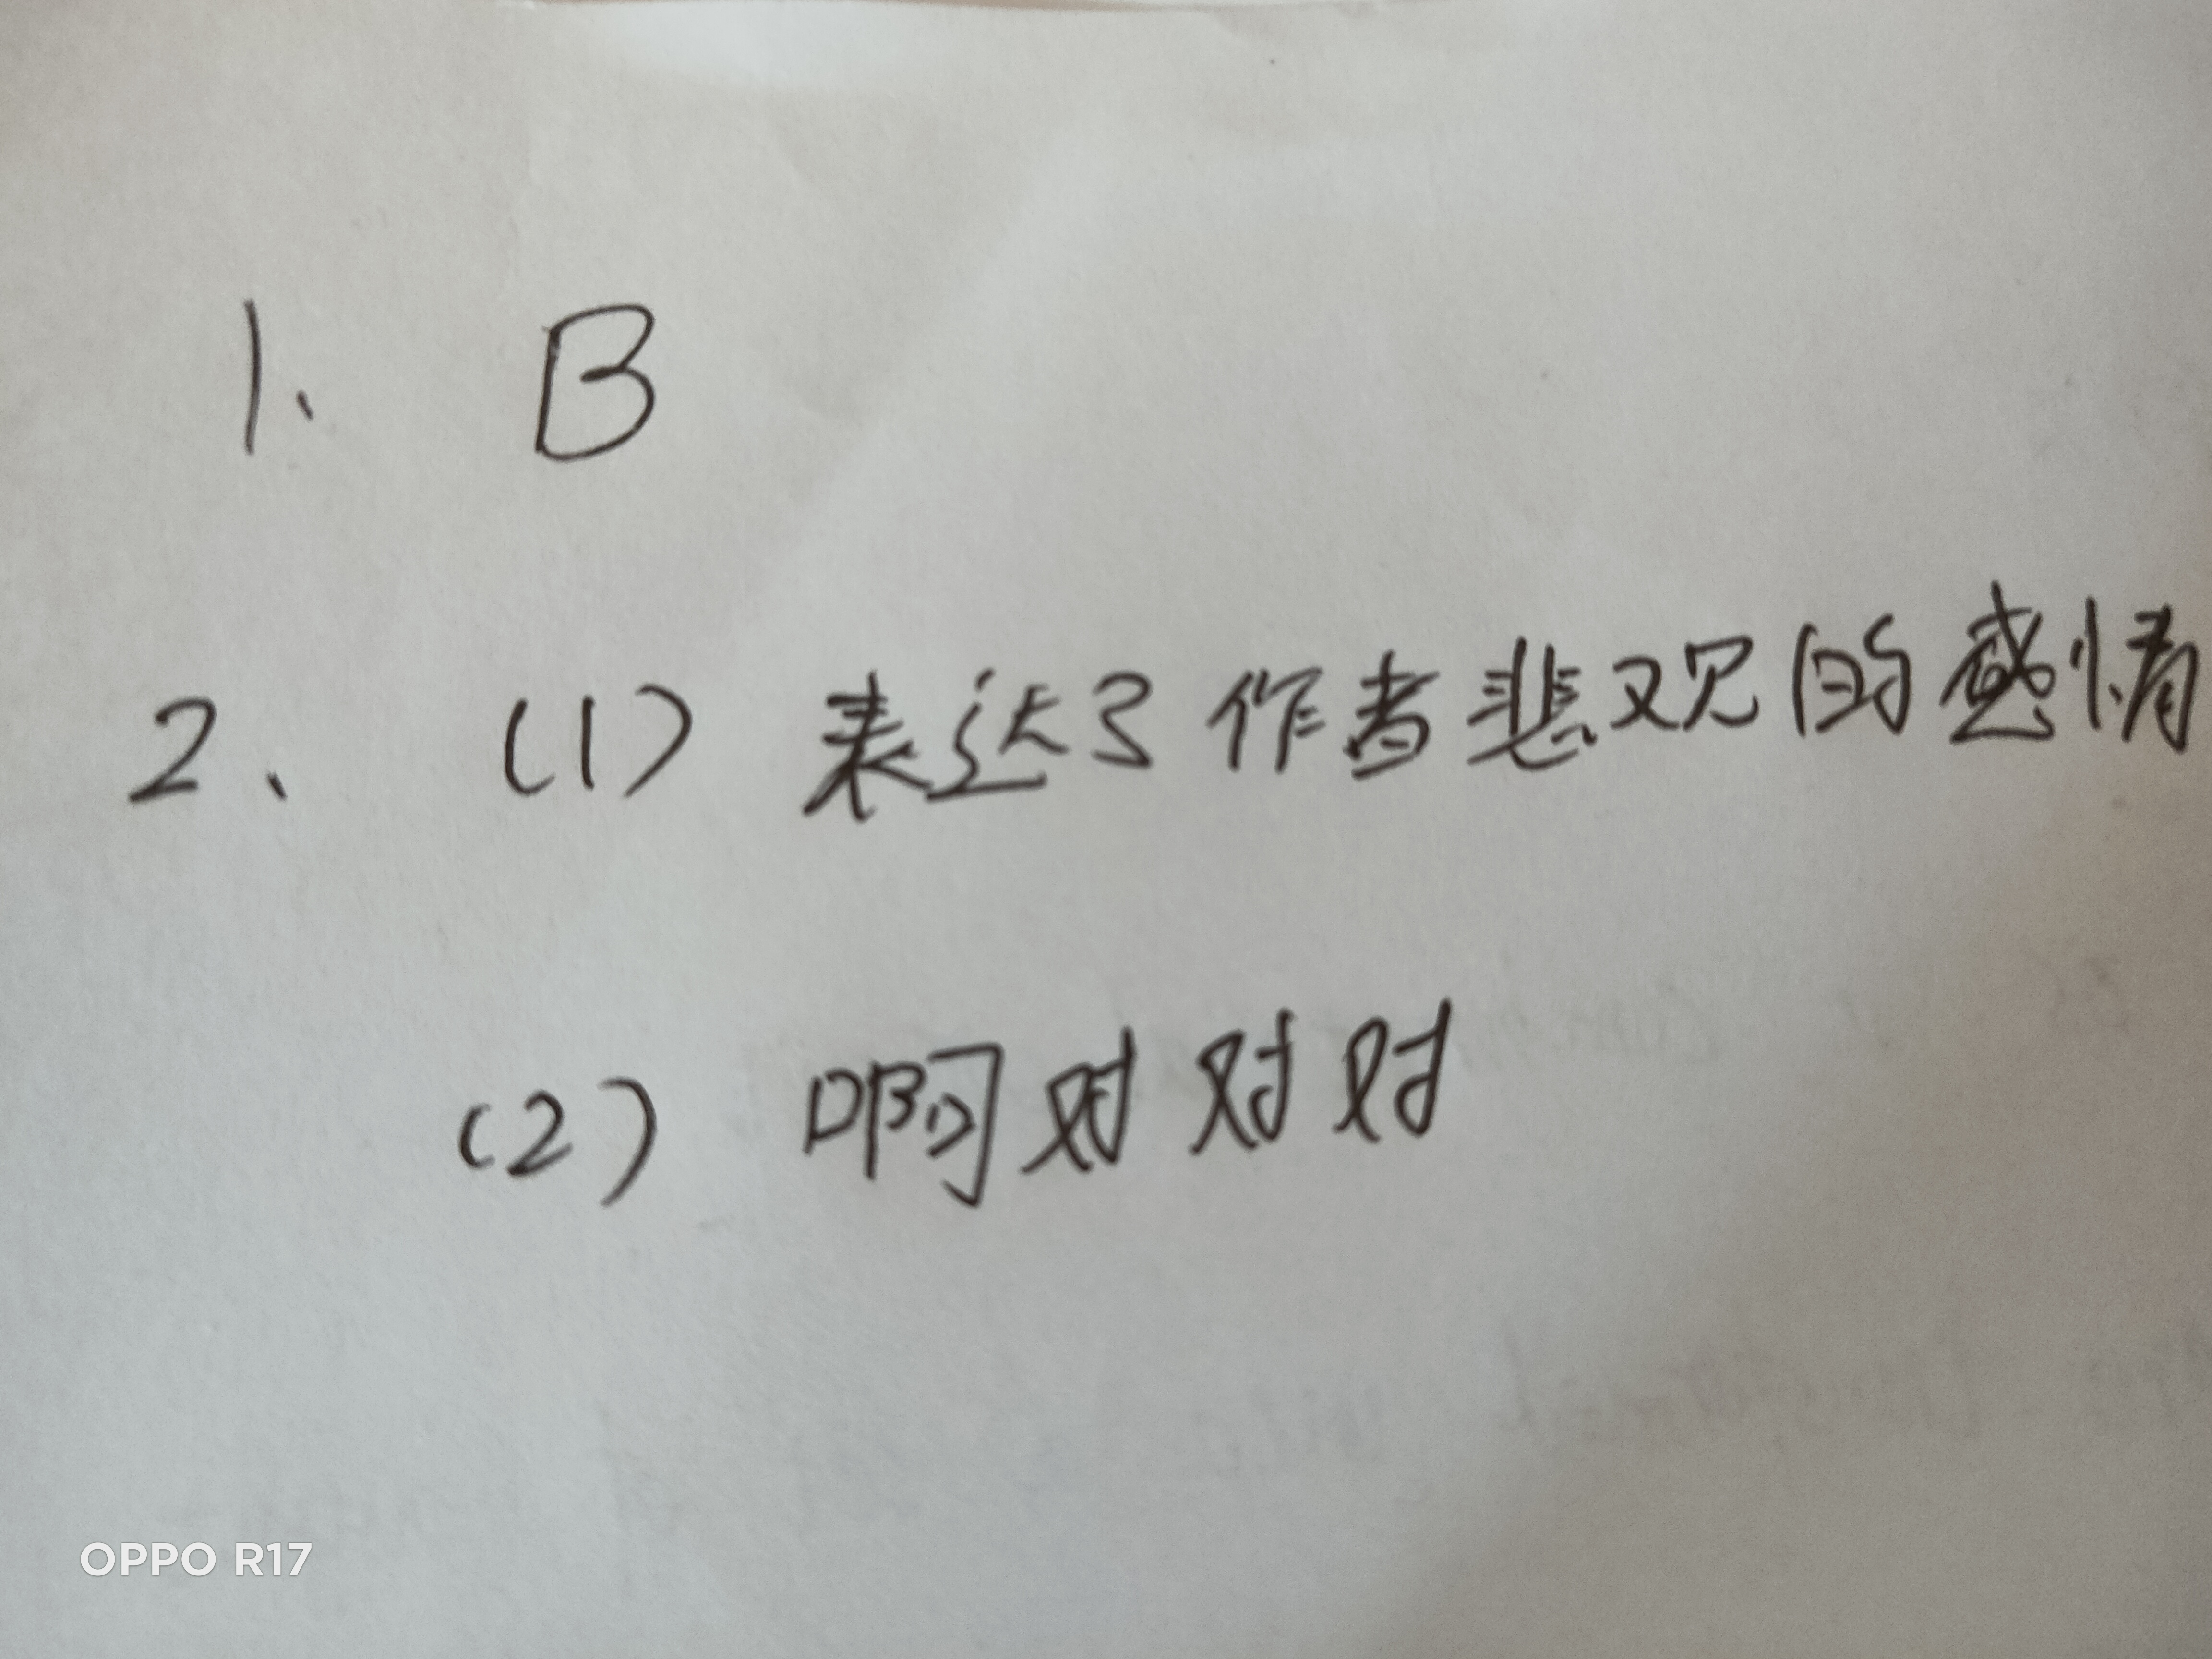 1、 B
2、 (1) 表达了作者悲观的感情
(2) 啊对对对
OPPO R17